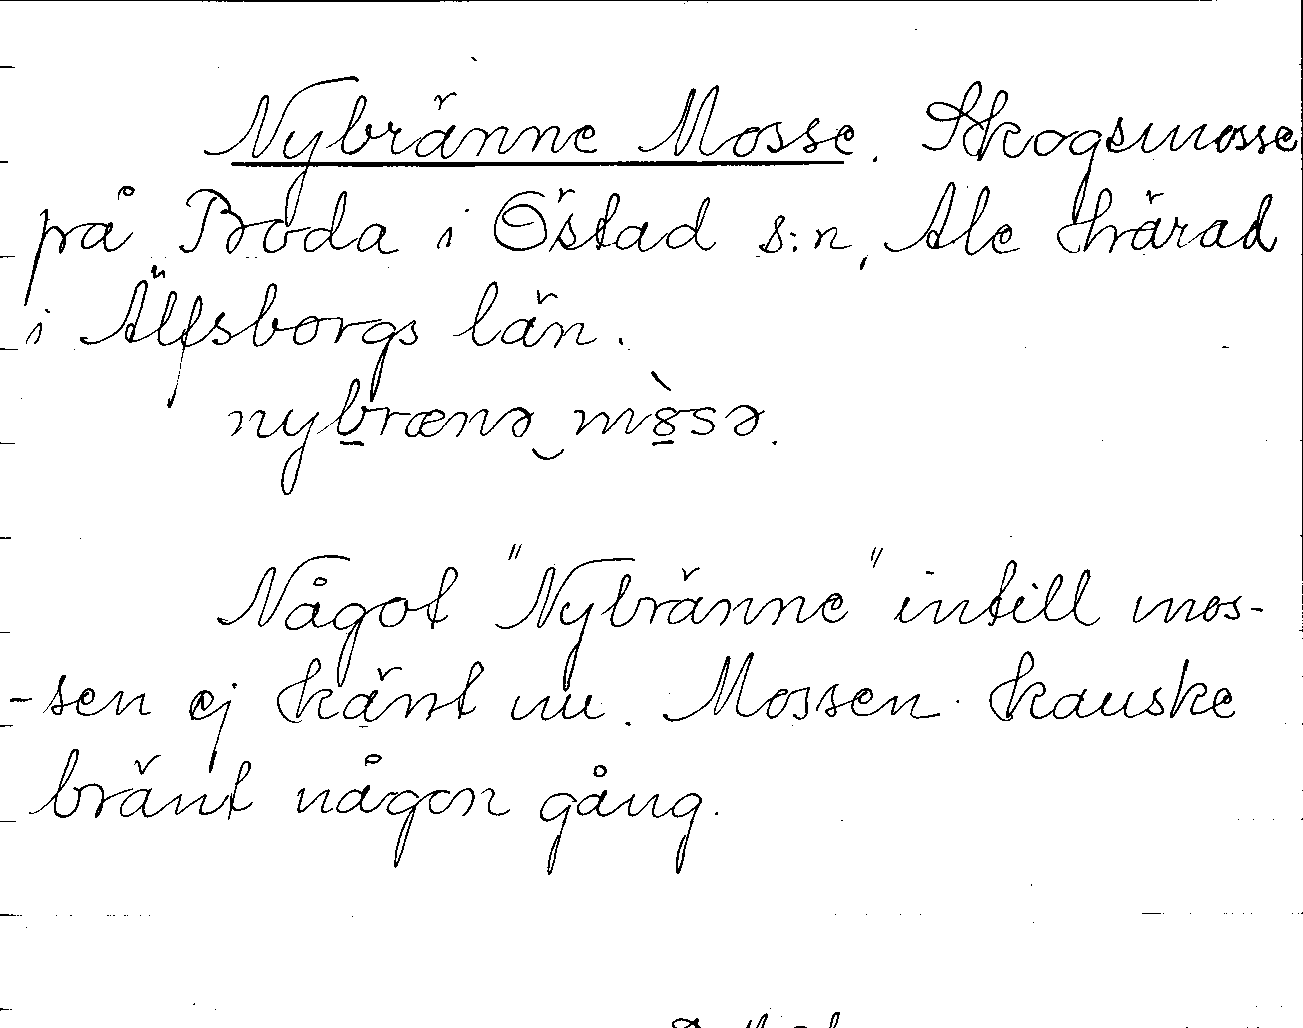 Nybränne Mosse. Skogsmosse
på Broda i Östad s:n, Ale härad
i Älfsborgs län.
nybrænə mòsə.
Något "Nybränne" intill mos-
-sen ej känt nu. Mossen kanske
bränt någon gång.